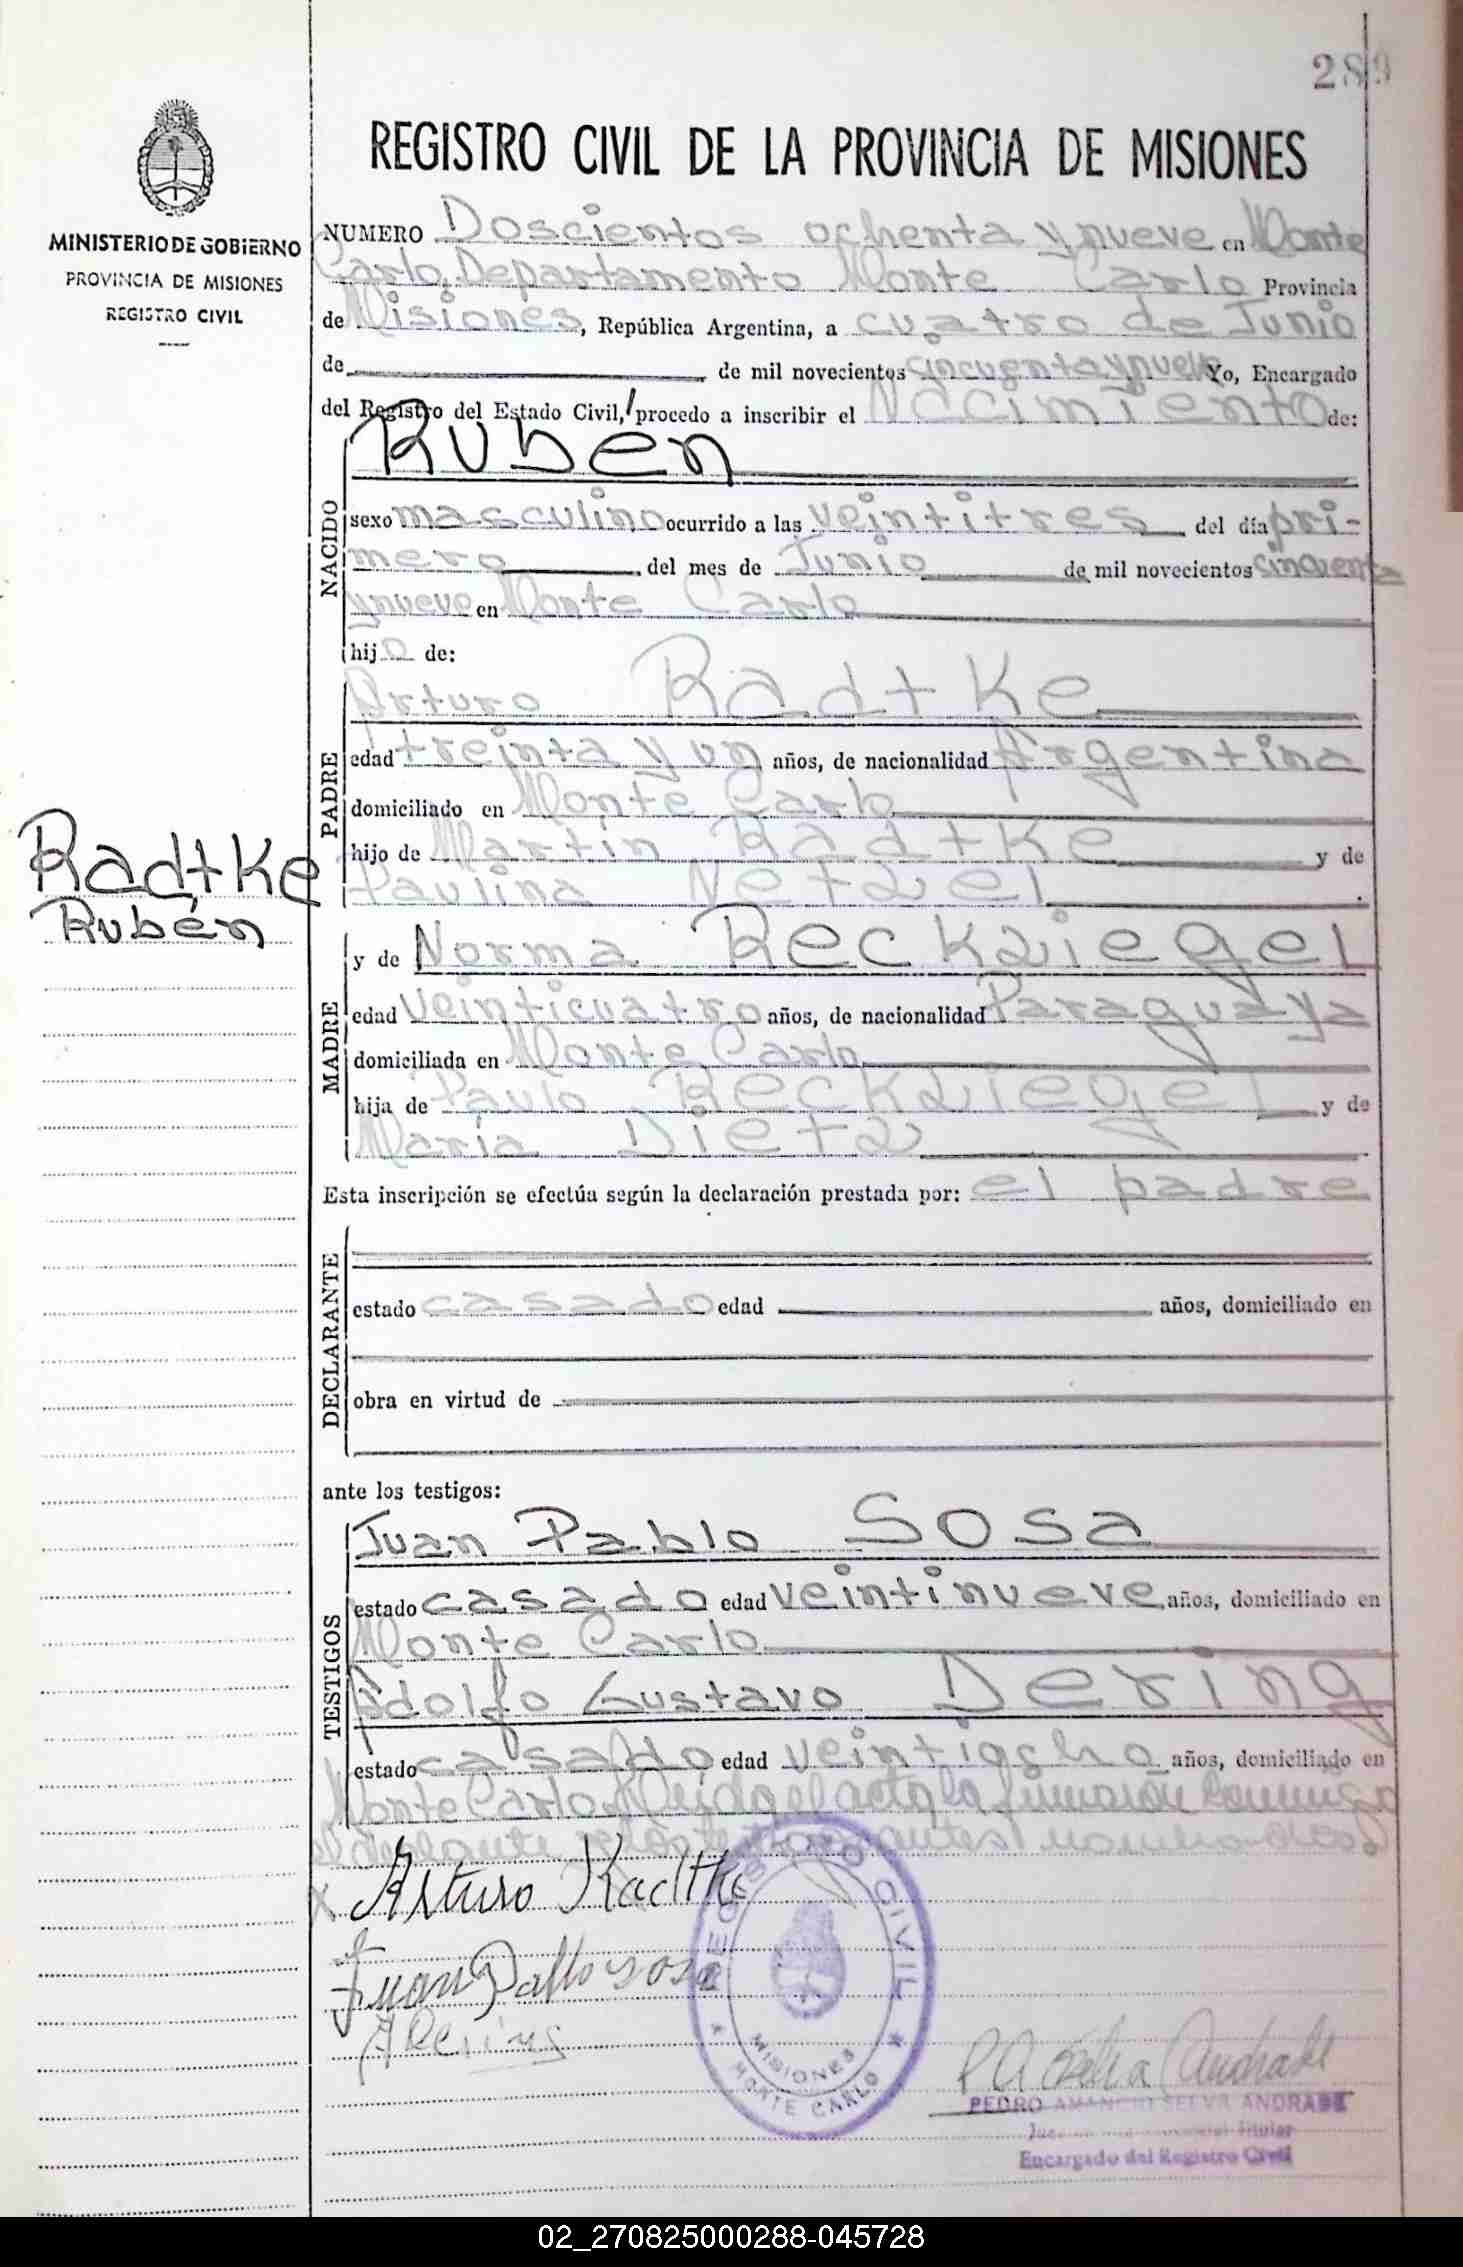 289
REGISTRO CIVIL DE LA PROVINCIA DE MISIONES
MINISTERIO DE GOBIERNO
PROVINCIA DE MISIONES
REGISTRO CIVIL
NUMERO Doscientos ochenta y nueve en Monte
Carlo, Departamento Monte Carlo Provincia
de Misiones, República Argentina, a cuatro de Junio
de de mil novecientos cincuenta y nueve Yo, Encargado
del Registro del Estado Civil, procedo a inscribir el Nacimiento de:
Ruben
NACIDO
sexo masculino ocurrido a las veintitres del día pri-
mero del mes de Junio de mil novecientos cincuenta
y nueve en Monte Carlo
hijo de:
PADRE
Arturo Radtke
edad treinta y un años, de nacionalidad Argentina
domiciliado en Monte Carlo
hijo de Martin Radtke y de
Paulina Netzel
Radtke
Rubén
MADRE
y de Norma Reckziegel
edad veinticuatro años, de nacionalidad Paraguaya
domiciliada en Monte Carlo
hija de Paulo Reckziegel y de
Maria Dietz
Esta inscripción se efectúa según la declaración prestada por: el padre
DECLARANTE
estado casado edad años, domiciliado en
obra en virtud de
ante los testigos:
TESTIGOS
Juan Pablo Sosa
estado casado edad veintinueve años, domiciliado en
Monte Carlo
Adolfo Gustavo Dering
estado casado edad veintiocho años, domiciliado en
Monte Carlo. Leida el acta la firmaron conmigo
el declarante y los testigos
X Arturo Radtke
Juan Pablo Sosa
ADering
REGISTRO CIVIL
MISIONES
MONTE CARLO
PEDRO AMANCIO SELVA ANDRADE
Titular
Encargado del Registro Civil
02_270825000288-045728